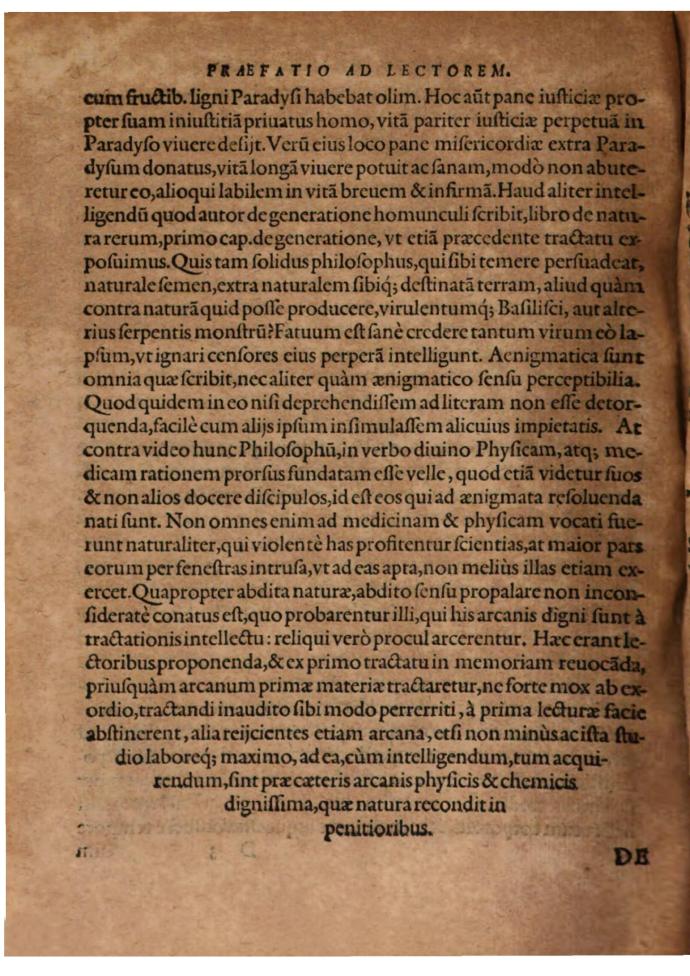 PRAEFATIO AD LECTOREM.
cum fructib. ligni Paradysi habebat olim. Hoc aũt pane iusticiæ pro-
pter suam iniustitiã priuatus homo, vitã pariter iusticiæ perpetuã in
Paradyso viuere desijt. Verũ eius loco pane misericordiæ extra Para-
dysum donatus, vitã longã viuere potuit ac sanam, modò non abute-
retur eo, alioqui labilem in vitã breuem & infirmã. Haud aliter intel-
ligendũ quod autor de generatione homunculi scribit, libro de natu-
ra rerum, primo cap. de generatione, vt etiã præcedente tractatu ex-
posuimus. Quis tam solidus philosophus, qui sibi temere persuadeat,
naturale semen, extra naturalem sibiq; destinatã terram, aliud quàm
contra naturã quid posse producere, virulentumq; Basilisci, aut alte-
rius serpentis monstrũ? Fatuum est sanè credere tantum virum eò la-
psum, vt ignari censores eius perperã intelligunt. Aenigmatica sunt
omnia quæ scribit, nec aliter quàm ænigmatico sensu perceptibilia.
Quod quidem in eo nisi deprehendissem ad literam non esse detor-
quenda, facilè cum alijs ipsum insimulassem alicuius impietatis. At
contra video hunc Philosophũ, in verbo diuino Physicam, atq; me-
dicam rationem prorsus fundatam esse velle, quod etiã videtur suos
& non alios docere discipulos, id est eos qui ad ænigmata resoluenda
nati sunt. Non omnes enim ad medicinam & physicam vocati fue-
runt naturaliter, qui violentè has profitentur scientias, at maior pars
eorum per fenestras intrusa, vt ad eas apta, non meliùs illas etiam ex-
ercet. Quapropter abdita naturæ, abdito sensu propalare non incon-
sideratè conatus est, quo probarentur illi, qui his arcanis digni sunt à
tractationis intellectu: reliqui verò procul arcerentur. Hæc erant le-
ctoribus proponenda, & ex primo tractatu in memoriam reuocãda,
priusquàm arcanum primæ materiæ tractaretur, ne forte mox ab ex-
ordio, tractandi inaudito sibi modo perrerriti, à prima lecturæ facie
abstinerent, alia reijcientes etiam arcana, etsi non minùs ac ista stu-
dio laboreq; maximo, ad ea, cùm intelligendum, tum acqui-
rendum, sint præ cæteris arcanis physicis & chemicis
dignissima, quæ natura recondit in
penitioribus.
DE